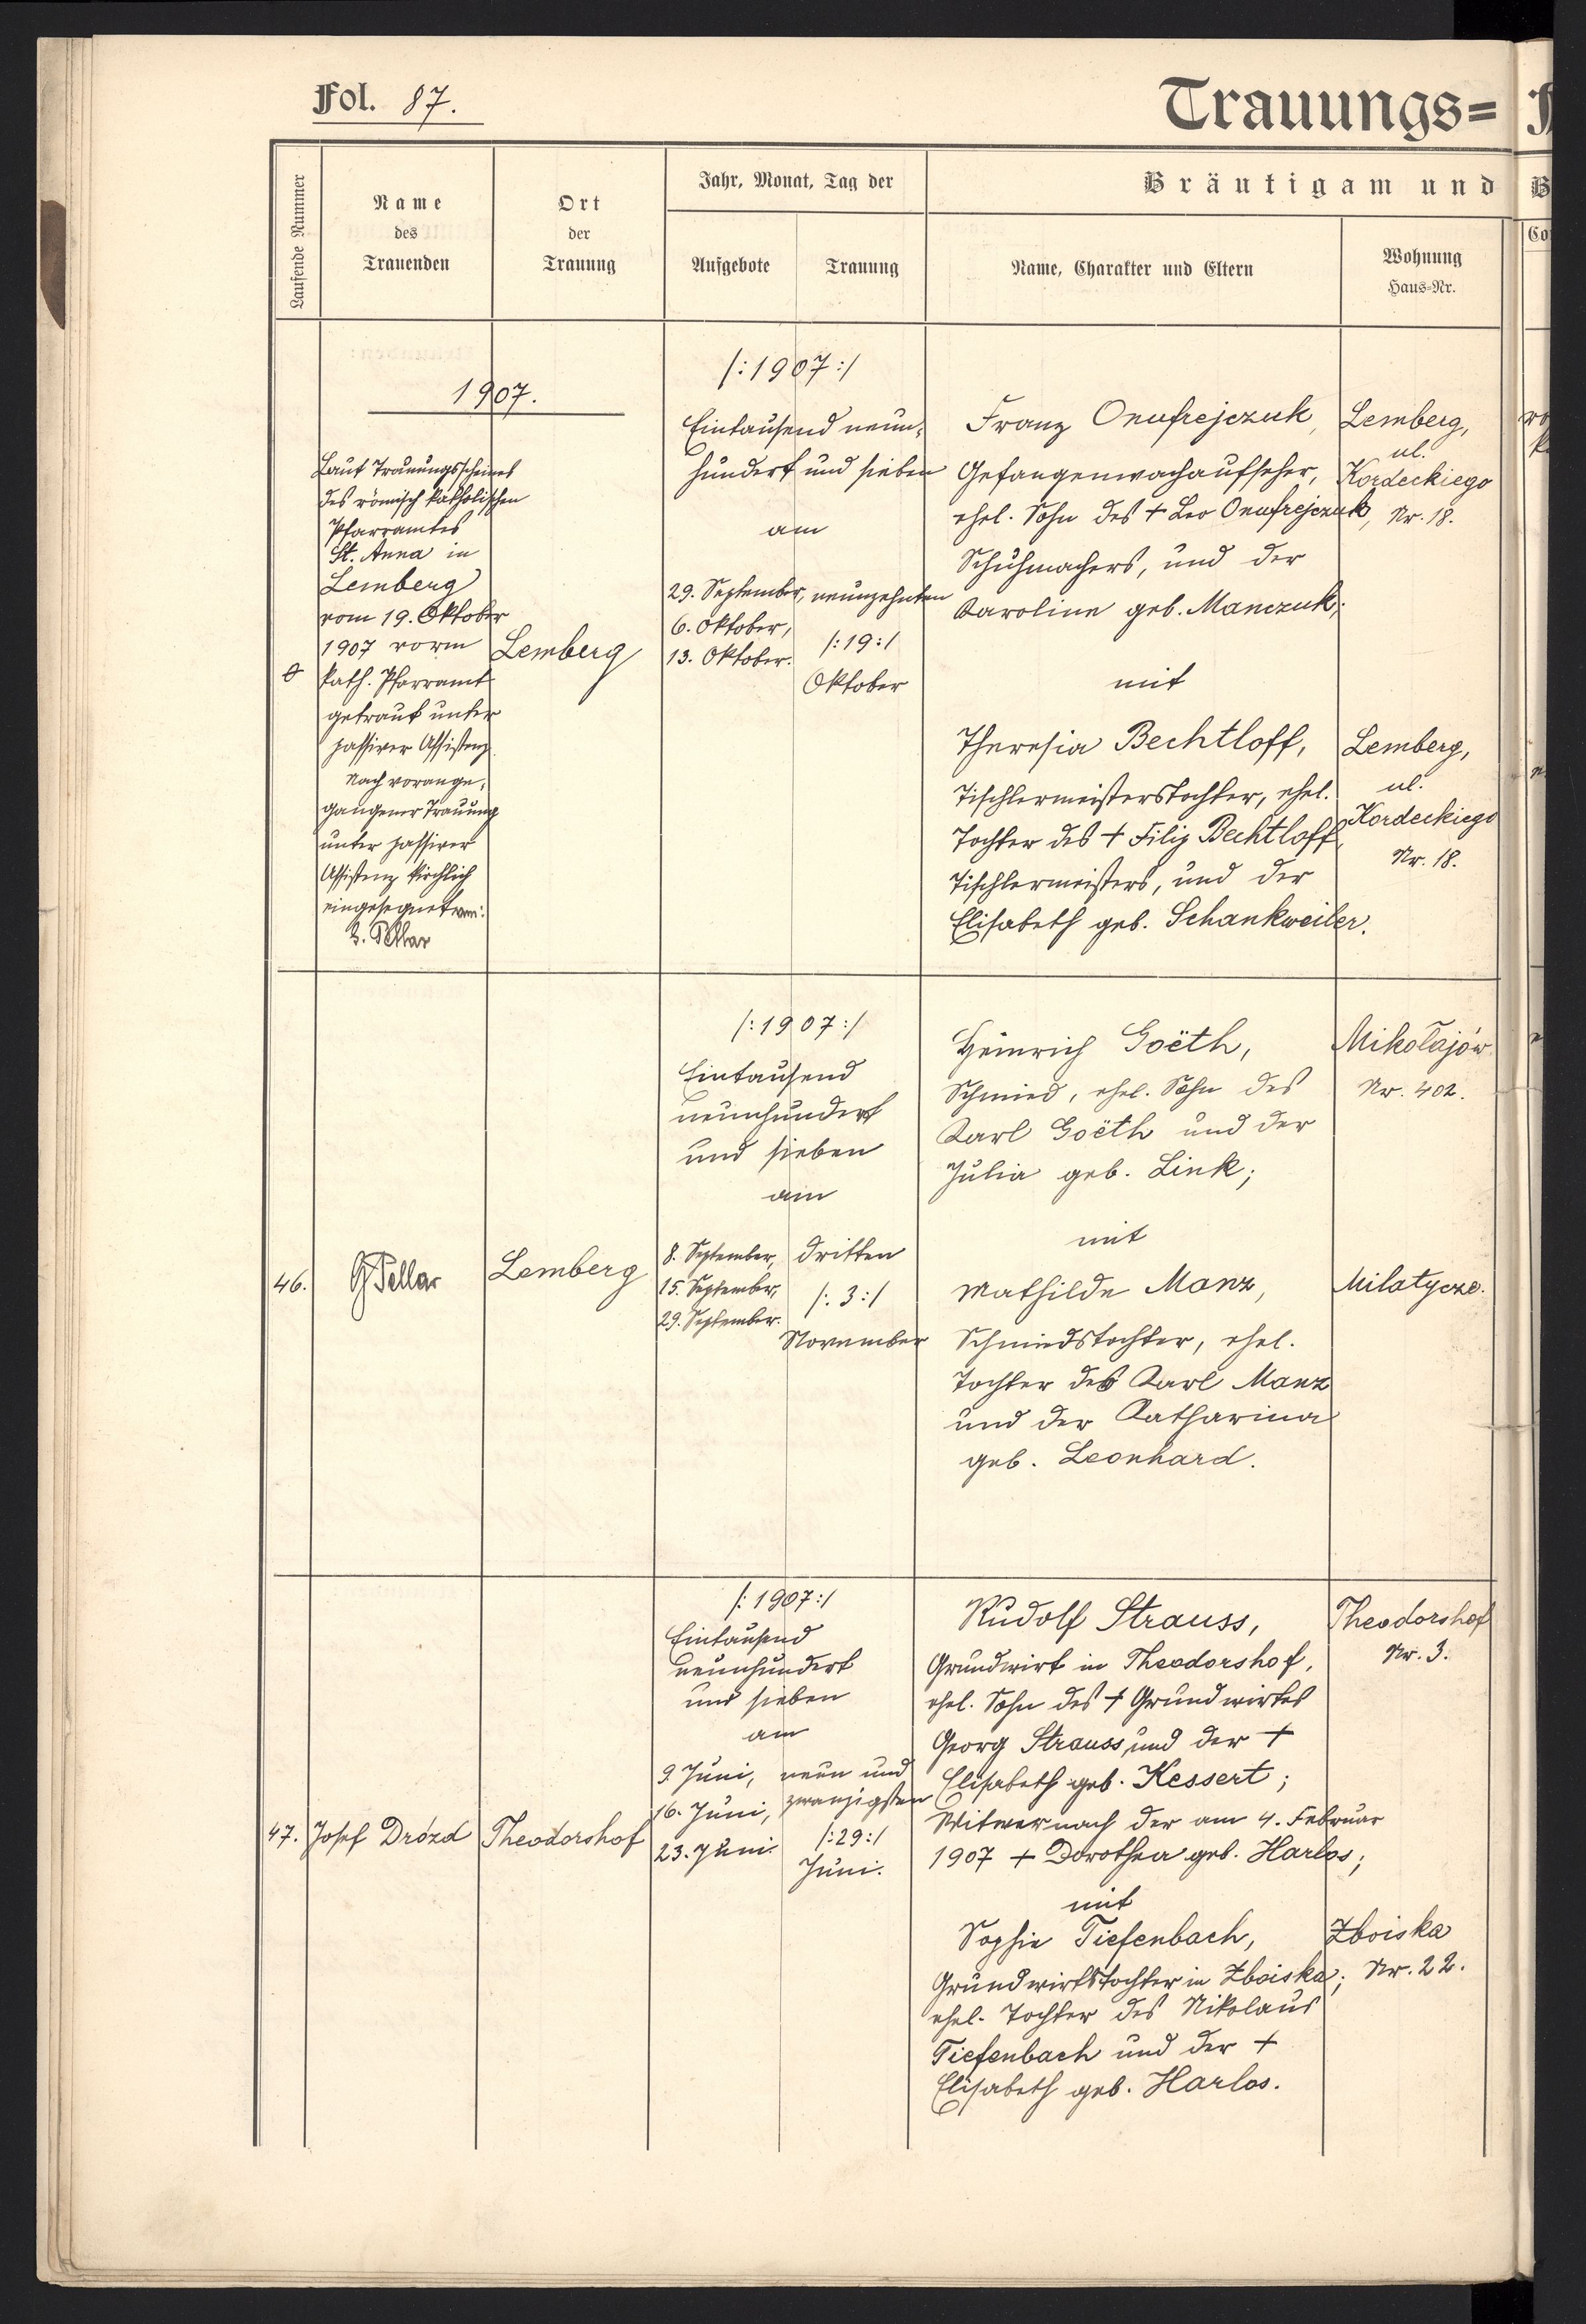 Fol. 87.
Trauungs=
Laufende Nummer
Name
des
Trauenden
Ort
der
Trauung
Jahr, Monat, Tag der
Aufgebote
Trauung
Bräutigam und
Name, Charakter und Eltern
Wohnung
Haus=Nr.
1907.
Laut Trauungsscheines
des römisch katholischen
Pfarramtes
St. Anna in
Lemberg
vom 19. Oktober
1907 vorm
kath. Pfarramt
getraut unter
passiver Assistenz
Nach vorange=
gangener Trauung
unter passiver
Assistenz kirchlich
eingesegnet von:
Pellar
Lemberg
/:1907:/
Eintausend neun=
hundert und sieben
am
29. September,
6. Oktober,
13. Oktober.
neunzehnten
/:19:/
Oktober
Franz Onufrejczuk,
Gefangenwachaufseher,
ehel. Sohn des + Leo Onufrejczuk,
Schuhmachers, und der
Karoline geb. Manczuk;
mit
Theresia Bechtloff,
Tischlermeisterstochter, ehel.
Tochter des + Filip Bechtloff,
Tischlermeisters, und der
Elisabeth geb. Schankweiler.
Lemberg,
ul.
Kordeckiego
Nr. 18.
Lemberg,
ul.
Kordeckiego
Nr. 18.
46.
G Pellar
Lemberg
/:1907:/
Eintausend
neunhundert
und sieben
am
8. September,
15. September,
29. September.
dritten
/:3:/
November
Heinrich Goëth,
Schmied, ehel. Sohn des
Karl Goëth und der
Julia geb. Link;
mit
Mathilde Manz,
Schmiedstochter, ehel.
Tochter des Karl Manz
und der Katharina
geb. Leonhard.
Mikołajów
Nr. 402.
Milatycze.
47.
Josef Drózd
Theodorshof
/:1907:/
Eintausend
neunhundert
und sieben
am
9. Juni,
16. Juni,
23. Juni.
neun und
zwanzigsten
/:29:/
Juni.
Rudolf Strauss,
Grundwirt in Theodorshof,
ehel. Sohn des + Grundwirtes
Georg Strauss und der +
Elisabeth geb. Kessert;
Witwer nach der am 4. Februar
1907 + Dorothea geb. Harlos;
mit
Sophie Tiefenbach,
Grundwirtstochter in Zboiska;
ehel. Tochter des Nikolaus
Tiefenbach und der +
Elisabeth geb. Harlos.
Theodorshof
Nr. 3.
Zboiska
Nr. 22.